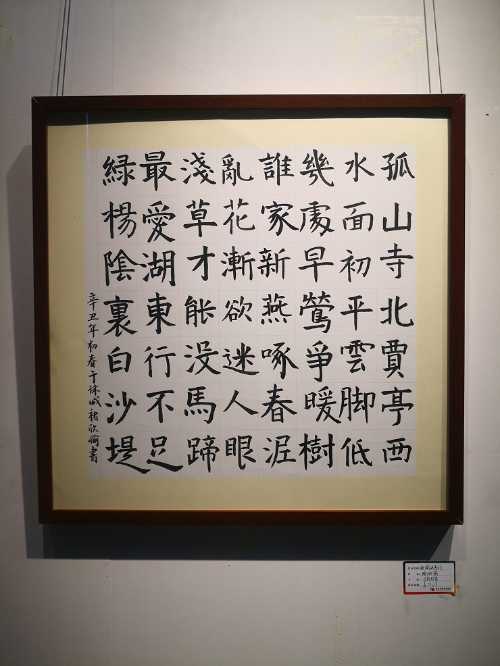 孤山寺北賈亭西
水面初平雲脚低
幾處早鶯爭暖樹
誰家新燕啄春泥
亂花漸欲迷人眼
淺草才能没馬蹄
最愛湖東行不足
緑楊陰裏白沙堤
辛丑年初春于